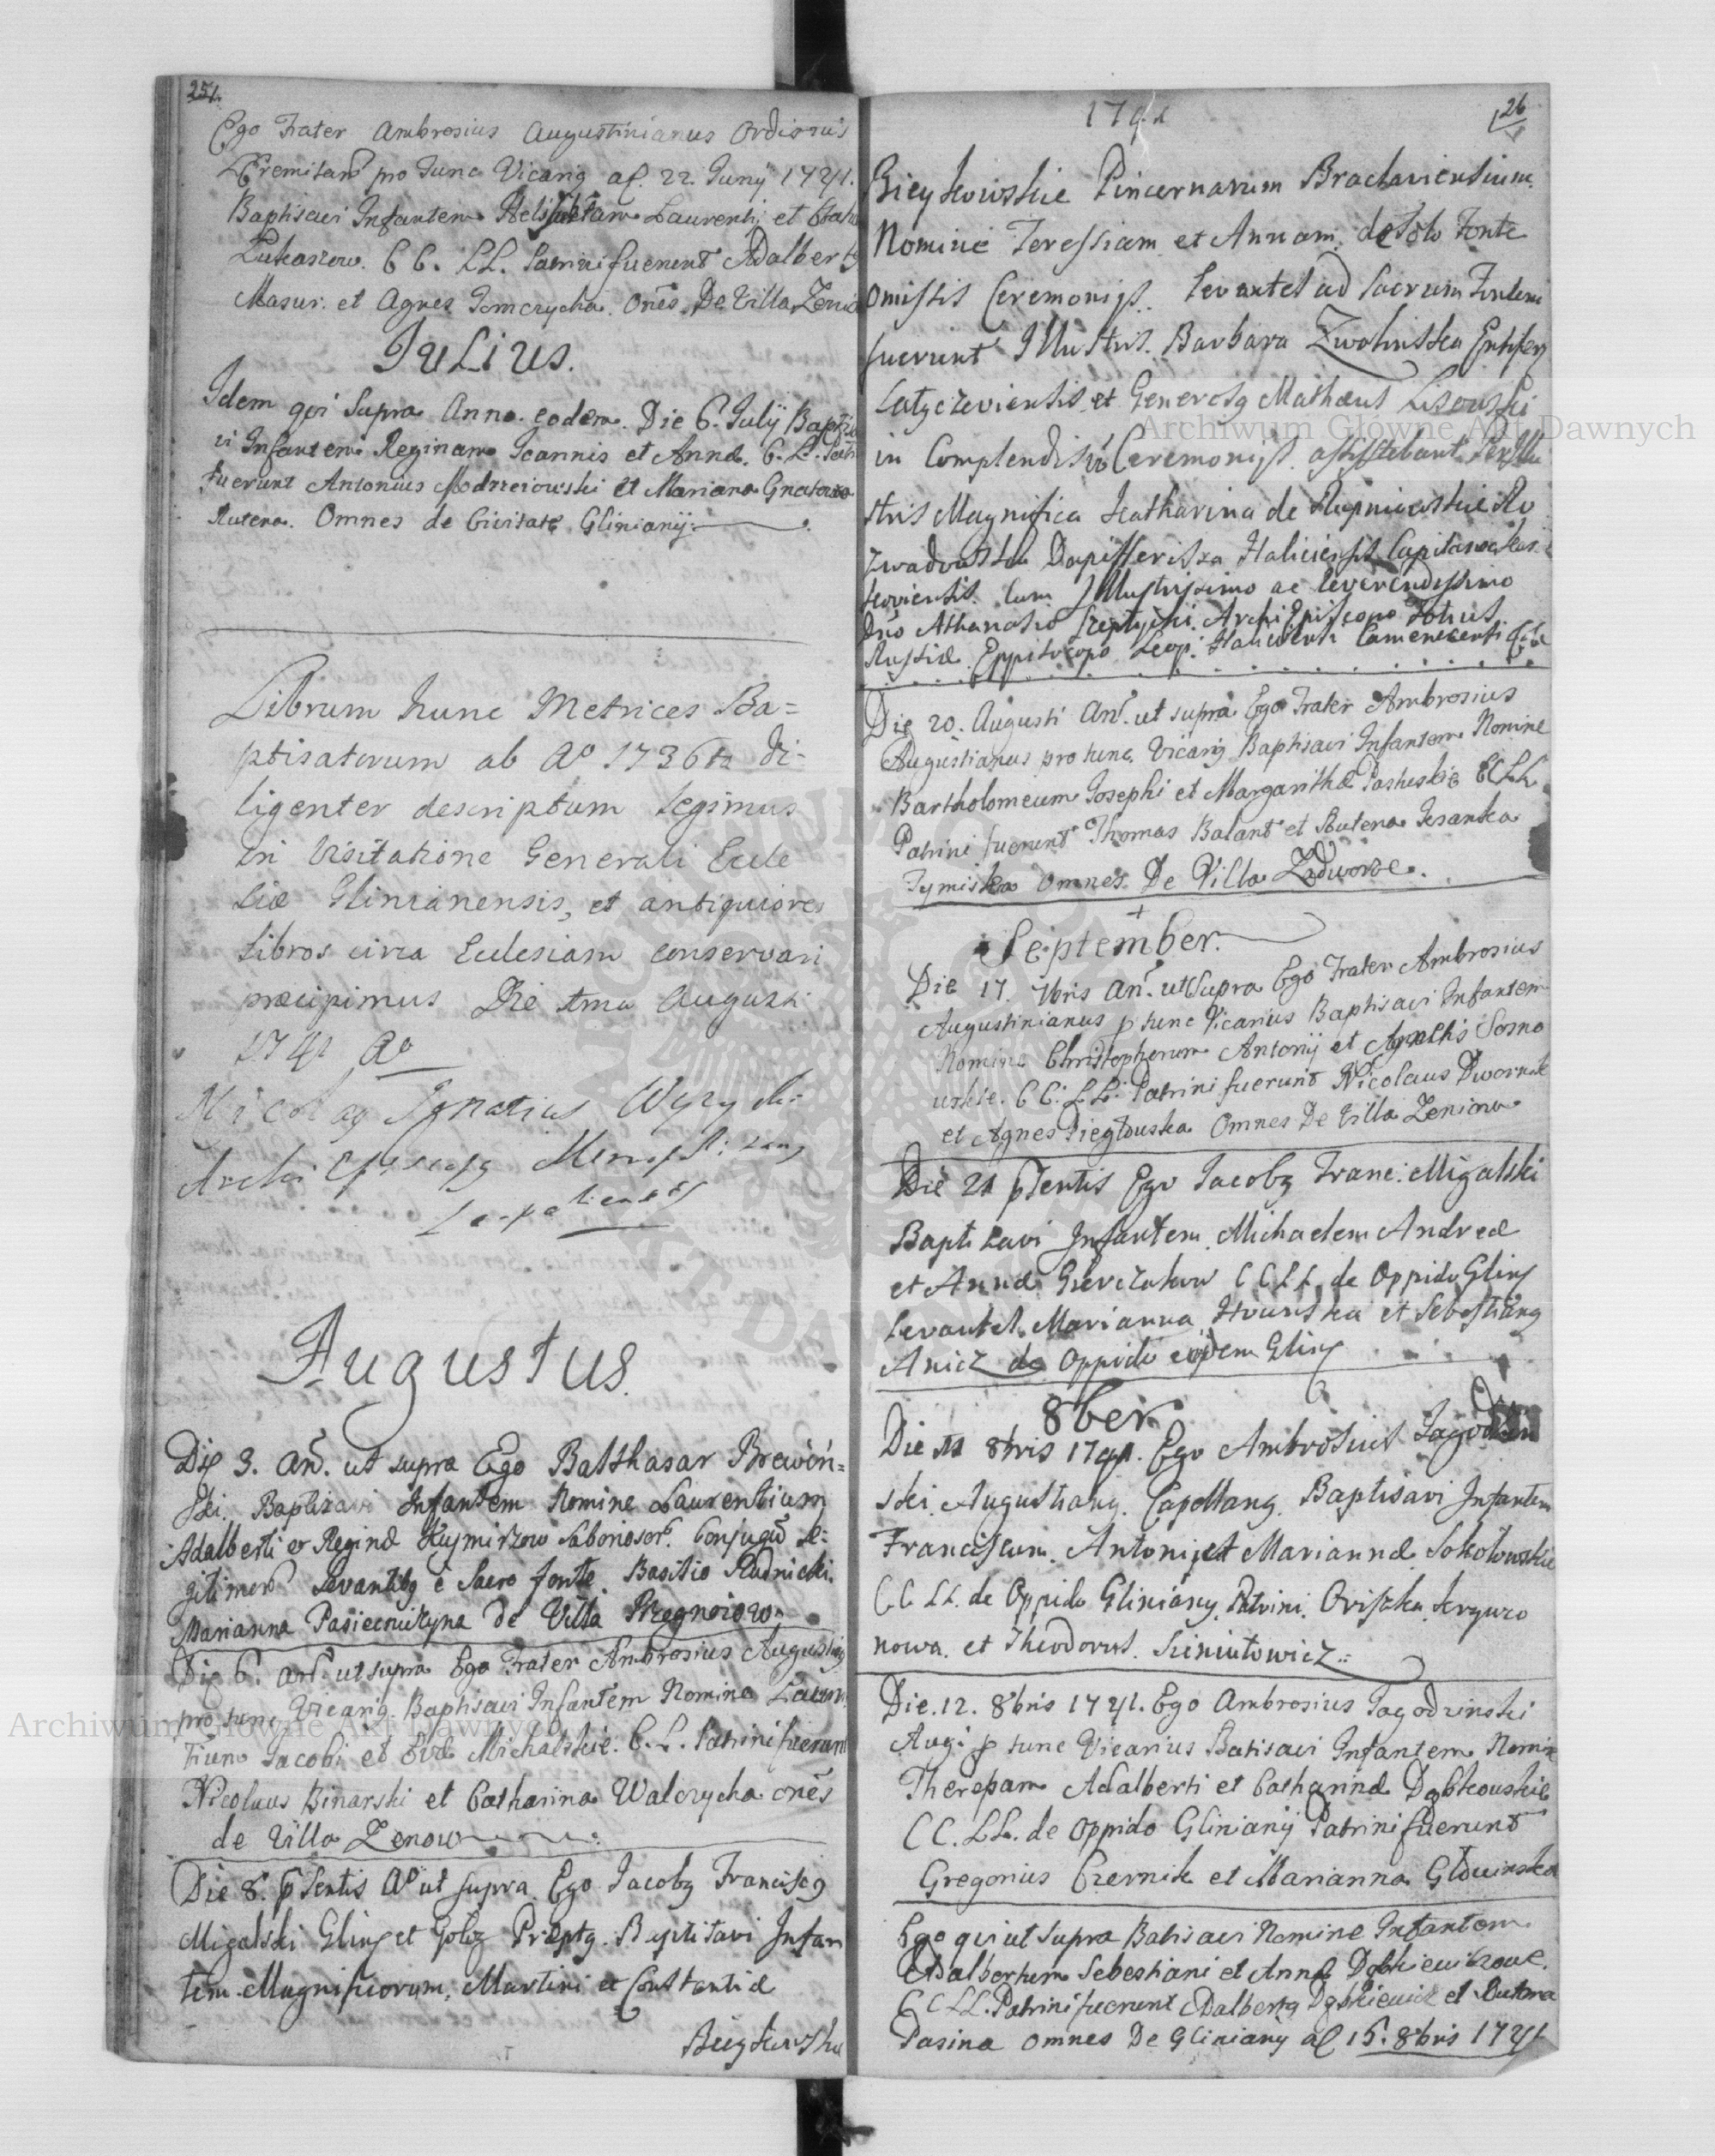 25.
Ego Frater Ambrosius Augustinianus Ordinis
Eremitarũ pro tunc Vicarig 22. Junij 1741.
Baptisavi Infantem Laurentij et
Lukaszow. C C. LL. Patrini fuerunt Adalbertg
Masur. et Agnes Tomczycha. Onẽs De Villa Zenio
Julius.
Idem qui Supra Anno. eodem. Die 6. Julij Baptiza
vi Infantem Reginam Joannis et Annæ. C. L. Patri
fuerunt Antonius Modrzeiowski et Mariana Gnatowa
Rutena. Omnes de Civitate Glinianij.
Librum hunc Metrices Ba=
ptisatorum ab Aº 1736to di=
ligenter descriptum legimus
in Visitatione Generali Eccle
siæ Glinianensis, et antiquiores
libros circa Ecclesiam conservari
præcipimus Die 1ma Augusti
1741 Aº
Nicolag Ignatius Wyzycki
Archi Episcopg
Leopoliensis
Augustus.
Die 3. Añ. ut supra Ego Balthasar Brewiń=
ski. Baptizavi Infantem Nomine Laurentium
Adalberti et Reginæ Kuzmirzow Laboriosor. Conjugũ le=
gitimorũ Levantibg è Sacro fonte. Basilio Rudnicki.
Marianna Pasiecniczyna de Villa
Die 6. Añ. ut supra Ego Frater Ambrosius Augustig
pro tunc Vicarig. Baptisavi Infantem Nomine Lauren
tium Jacobi et Evæ Michalskie. C. L. Patrini fuerunt
Nicolaus Binarski et Catharina Walczycha onẽs
de Villa Zenow
Die 8. pSentis Aº ut supra Ego Jacobg Franciscg
Migalski Gling et Golog Præptg. Baptisavi Infan
tem Magnificorum, Martini et Constantiæ
Bieykowskie
1741
26
Bieykowskie Pincernarum Braclaviensium.
Nomine Teressiam et Annam. de Solo Fonte
omissis Ceremonijs. Levantes ad Sacrum Fontem
fuerunt Illustris. Barbara Zwolinska Ensifera
Latyczeviensis et Generosg Mathæus Lisowski
in Complendis vº Ceremonijs. assistebant Perillu
stris Magnifica Katharina de Rupniewskie Ro
zwadowska Dapifferissa Haliciensis Capitanea
coviensis. Cum Illustrissimo ac Reverendissimo
Dñò Athanasio Szeptycki. Archi Episcopo Totius
Russiæ. Eppiscopo Leop. Haliciensi Camenecensi &c
Die 20. Augusti Añ. ut supra Ego Frater Ambrosius
Augustianus pro tunc. Vicarig Baptisavi Infantem Nomine
Bartholomeum Josephi et Margarithæ Paskuskie CCLL
Patrini fuerunt Thomas Balant et Rutena Ksanka
Tymiska omnes De Villa Zadworze.
September.
Die 17. 7bris Añ. ut Supra Ego Frater Ambrosius
Augustinianus p tunc Vicarius Baptisavi Infantem
Nomine Christopherum Antonij et Agnetis Sosno
uskie. C C. LL. Patrini fuerunt Nicolaus Dwornik
et Agnes Piegłouska Omnes De Villa Zeniow
Die 21 pSentis Ego Jacobg Franc: Migalski
Baptizavi Infantem. Michaelem Andreæ
et Annæ CCLL de Oppido Gling
Levantes. Marianna et Sebestiang
Anicz de Oppido eodem Gling
8ber
Die 11 8bris 1741. Ego Ambrosius Jagodzin
ski. Augustiang. Capellang. Baptisavi Infantem
Franciscum. Antonij et Mariannæ Sokołowskie
CC LL. de Oppido Gliniany. Patrini. Oryszka
nowa. et Theodorus. Sieniutowicz
Die. 12. 8bris 1741. Ego Ambrosius Jagodzinski
Aug: p tunc Vicarius Batisavi Infantem Nomine
Theresam Adalberti et Catharinæ Dąbkouskie
CC. LL. de Oppido Glinianij Patrini fuerunt
Gregorius Czernik et Marianna Głowinska
Ego qui ut Supra Batisavi Nomine Infantem
Adalbertum Sebestiani et Annæ Dąbkiewiczowe.
C C LL. Patrini fuerunt Adalbertg Dąbkiewicz et Rutena
Pasina omnes De Glinianij 15. 8bris 1741
Archiwum Główne Akt Dawnych
Archiwum Główne Akt Dawnych